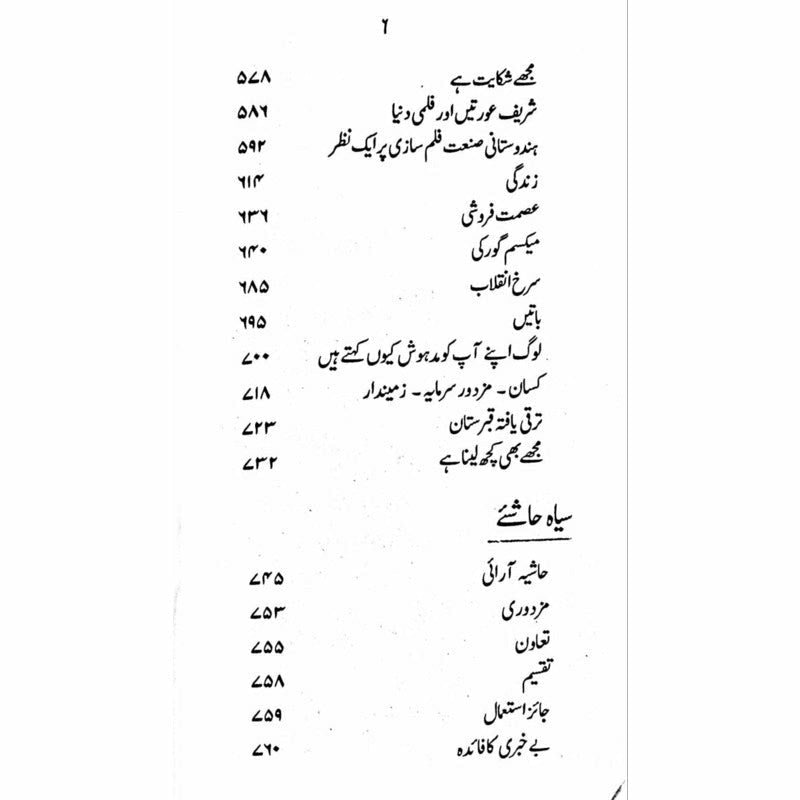 ۶
مجھے شکایت ہے ۵۷۸
شریف عورتیں اور فلمی دنیا ۵۸۶
ہندوستانی صنعت فلم سازی پر ایک نظر ۵۹۲
زندگی ۶۱۴
عصمت فروشی ۶۳۶
میکسم گورکی ۶۴۰
سرخ انقلاب ۶۸۵
باتیں ۶۹۵
لوگ اپنے آپ کو مدہوش کیوں کہتے ہیں ۷۰۰
کسان۔ مزدور سرمایہ۔ زمیندار ۷۱۸
ترقی یافتہ قبرستان ۷۲۳
مجھے بھی کچھ لینا ہے ۷۳۲
سیاہ حاشئے
حاشیہ آرائی ۷۴۵
مزدوری ۷۵۳
تعاون ۷۵۵
تقسیم ۷۵۸
جائز استعمال ۷۵۹
بے خبری کا فائدہ ۷۶۰